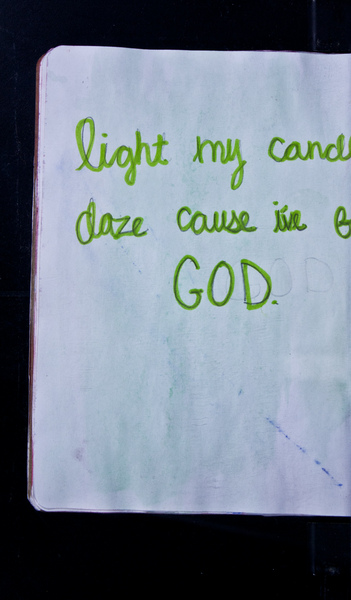 light my
daze cause iive
GOD.